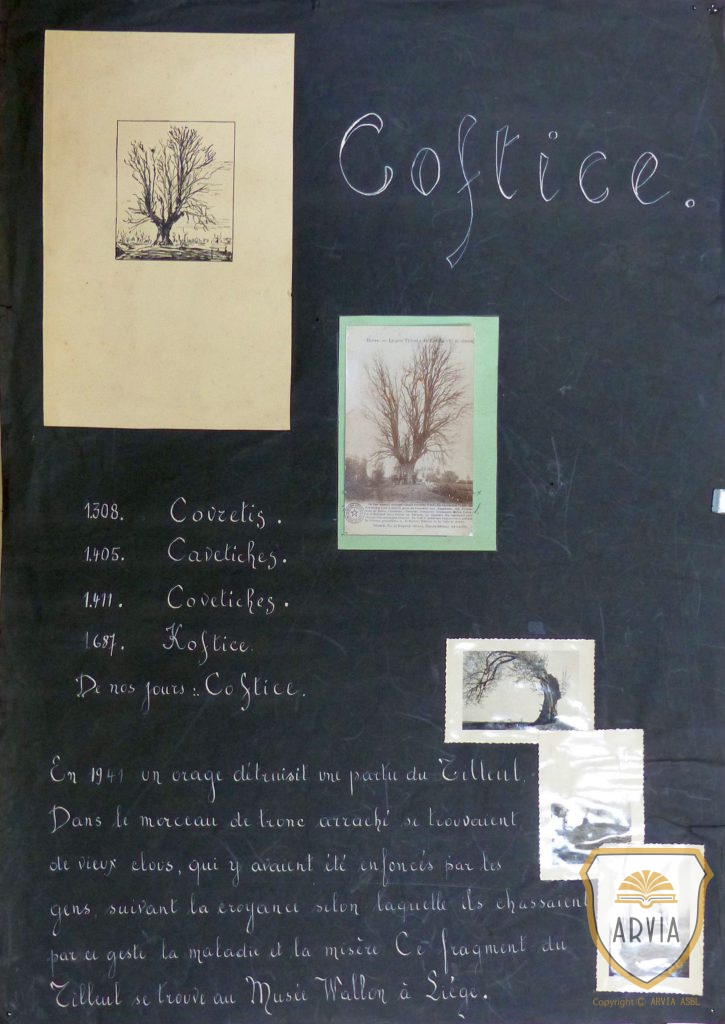 Coftice.
1308. Covretis.
1.405. Cavetiches.
1.411. Covetiches.
1687. Koftice.
De nos jours : Coftice.
En 1941 un orage détruisit une partie du Tilleul.
Dans le morceau de tronc arraché se trouvaient
de vieux clous, qui y avaient été enfoncés par les
gens, suivant la croyance selon laquelle ils chassaient
par ce geste la maladie et la misère Ce fragment du
Tilleul se trouve au Musée Wallon à Liége.
ARVIA
Copyright © ARVIA ASBL